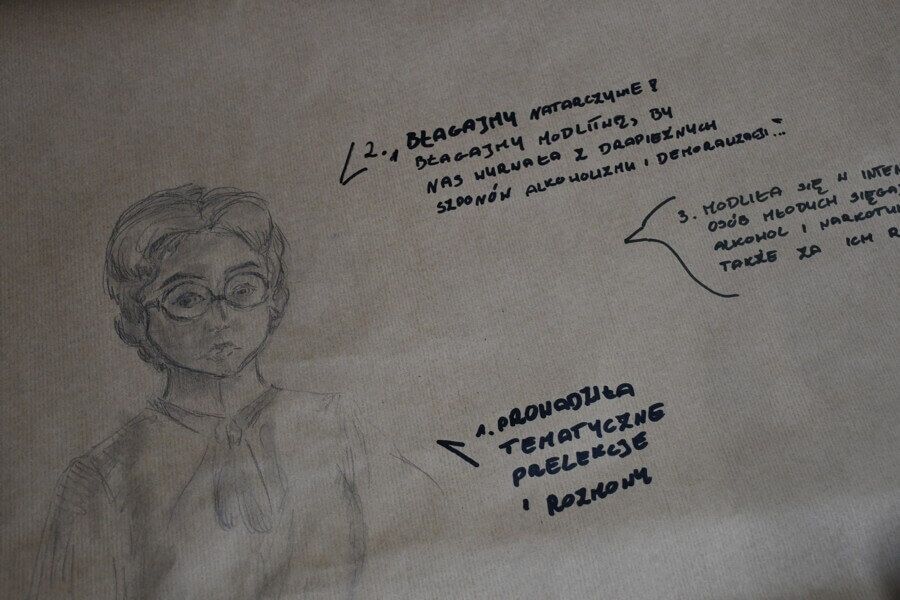 2. „BŁAGAJMY NATARCZYWIE!
BŁAGAJMY MODLITWĄ, BY
NAS WYRWAŁA Z DRAPIEŻNYCH
SZPONÓW ALKOHOLIZMU I DEMORALIZACJI..."
3. MODLIŁA SIĘ W INTEN
OSÓB MŁODYCH
ALKOHOL I
TAKŻE ZA ICH
1. PROWADZIŁA
TEMATYCZNE
PRELEKCJE
I ROZMOWY